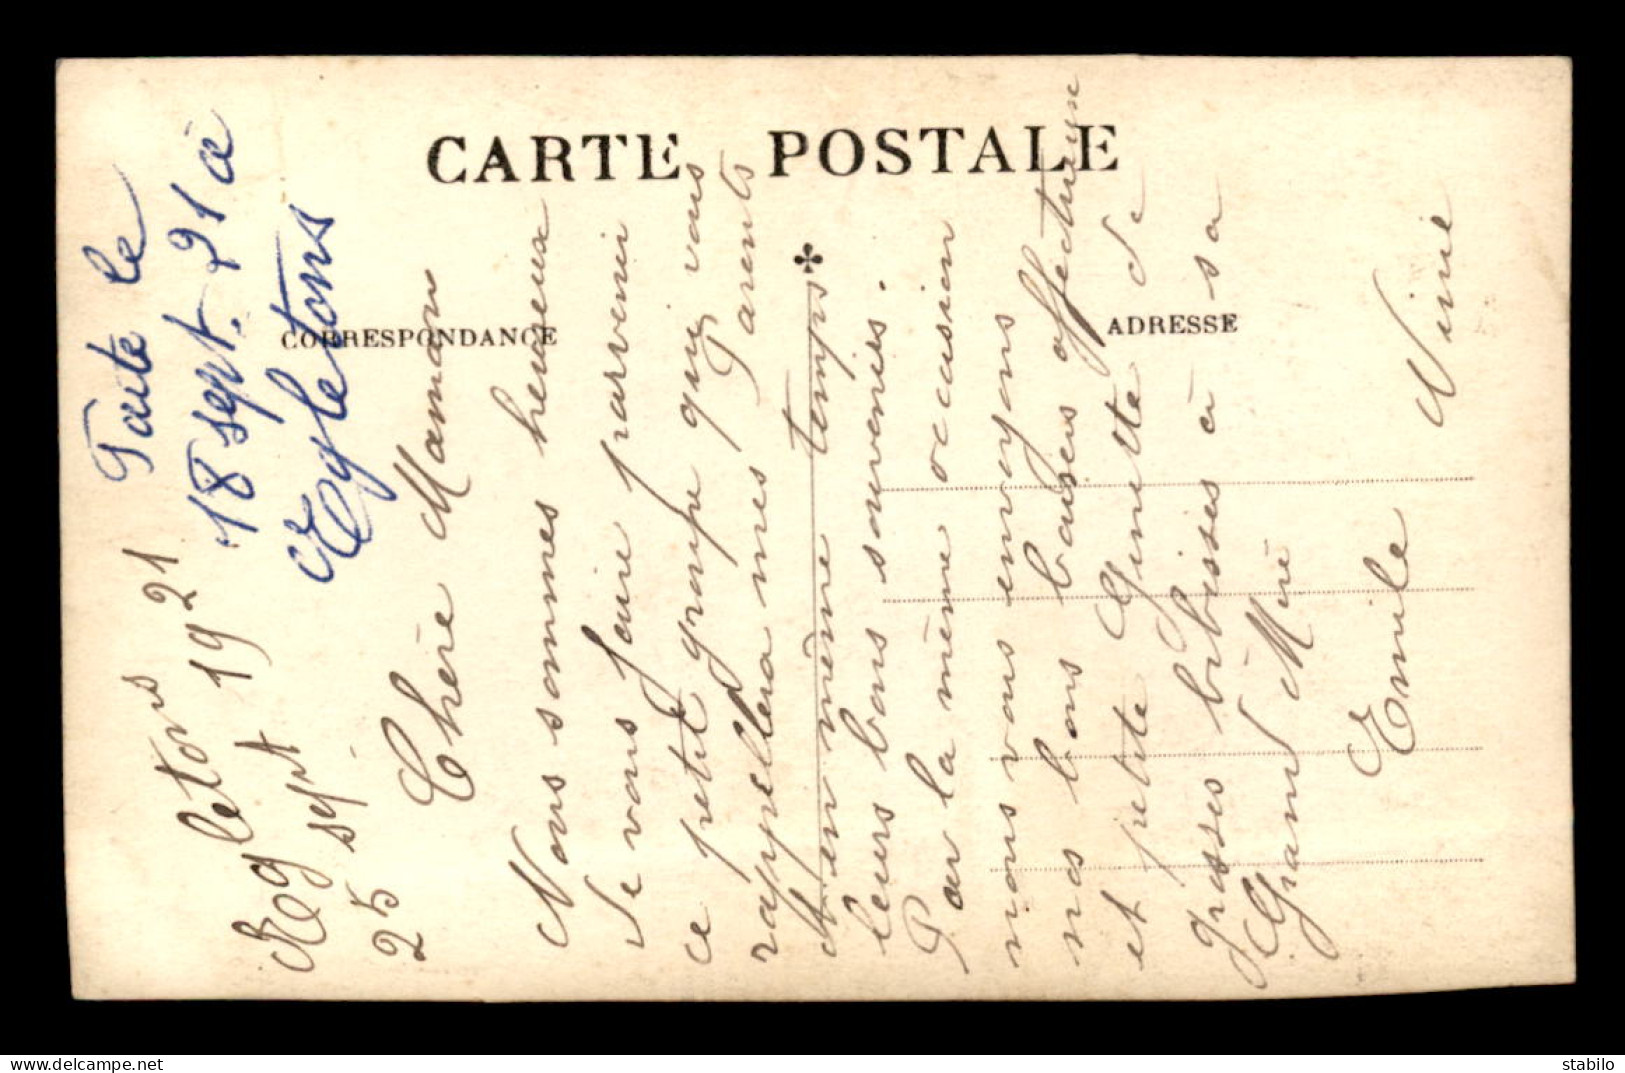 CARTE POSTALE
CORRESPONDANCE
ADRESSE
Faite le
18 sept. 21 à
Egletons
Egletons
25 sept 1921
Chère Maman
Nous sommes heureux
de vous faire parvenir
ce petit groupe qui vous
rappellera mes Parents
et en même temps
leurs bons souvenirs.
Par la même occasion
nous vous envoyons
nos bons baisers affectueux
et petite Ginette de
grosses bibisses à sa
Grand Mère
Emile Ninie
delcampe.net
stabilo